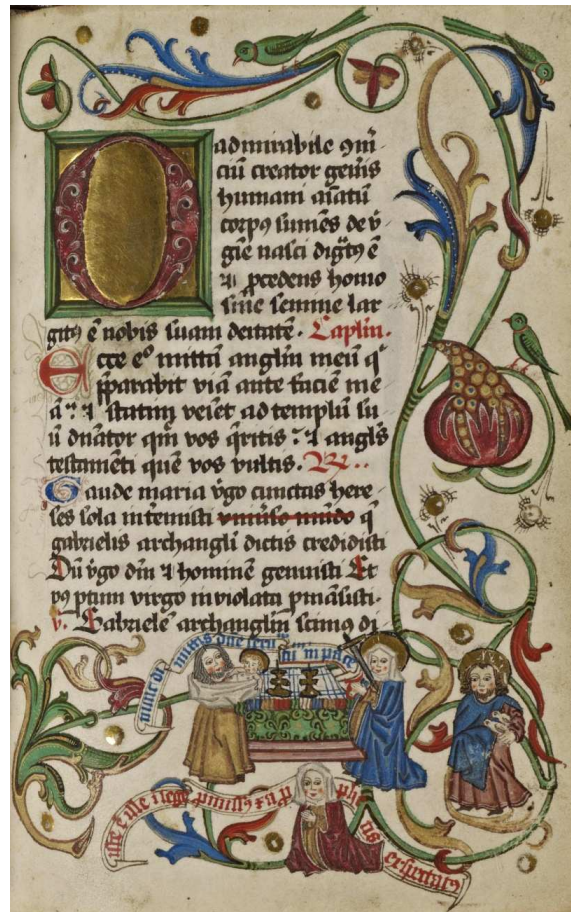 O admirabile 9m̄
ciū creator gen̄is
humani aīatū
corp9 sumēs de v̄
gīe nasci dig̃t9 ē
⁊ p̄cedens homo
sine semine lar
git9 ē nobis suam deitatē. Caplm̄.
Ecce eº mittā anglm̄ meū q̄
p̄parabit viā ante faciē me
ā ⁊ statim veīet ad templū su
ū dn̄ator qm̄ vos q̄ritis : ⁊ angl's
testamēti quē vos vultis. R.
Gaude maria v̄go cunctas here
ses sola intemisti vniuso mūdo q̄
gabrielis archangli dictis credidisti
Dū v̄go dm̄ ⁊ hominē genuisti Et
p9 ptum virgo inviolata pmāsisti.
v. Gabrielē archanglm̄ scimus di
nunc di mittis dn̄e seruū tuū in pace
iste ē ille ī lege p̄miss9 ⁊ a p phe tis exspectat9